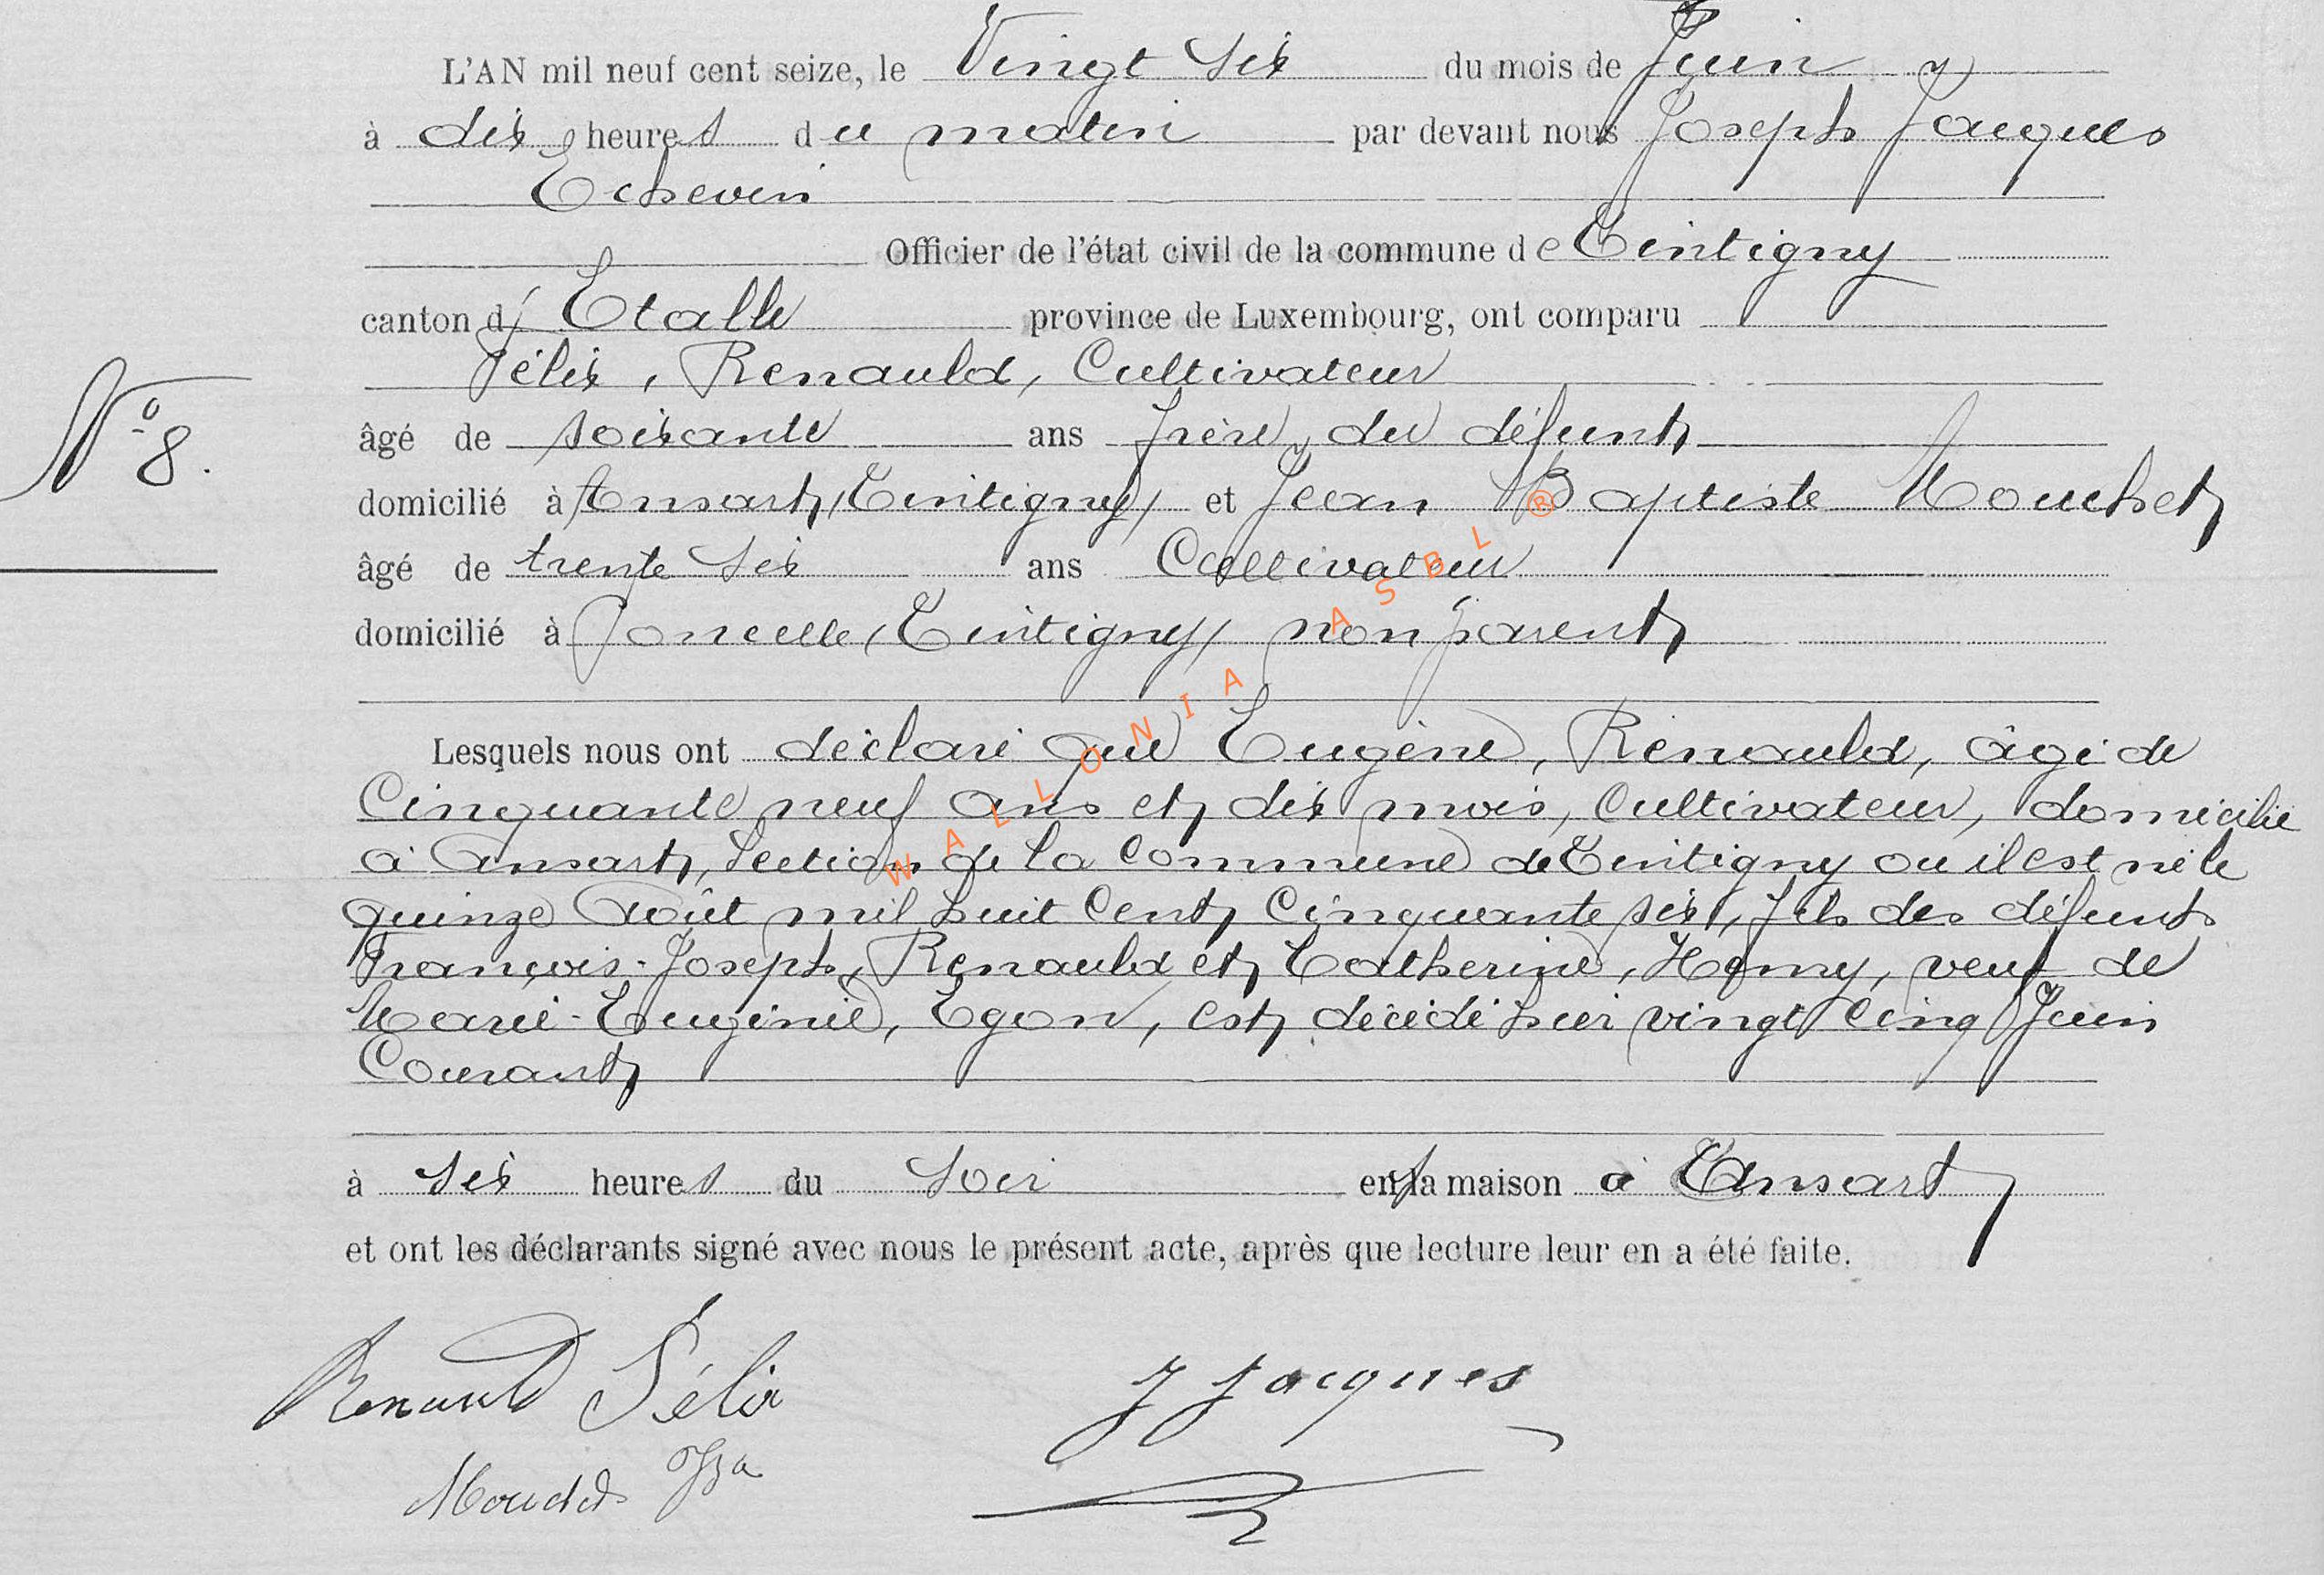 L'AN mil neuf cent seize, le Vingt six du mois de Juin
à dix heures du matin par devant nous Joseph Jacques
Echevin
Officier de l'état civil de la commune de Tintigny
canton d' Etalle province de Luxembourg, ont comparu
Félix, Renauld, Cultivateur
N° 8.
âgé de soixante ans frère du défunt
domicilié à Ansart, (Tintigny) et Jean Baptiste Mouchet
âgé de trente six ans Cultivateur
domicilié à Poncelle, (Tintigny) non parent
Lesquels nous ont déclaré que Eugène, Renauld, âgé de
Cinquante neuf ans et dix mois, Cultivateur, domicilié
à Ansart, Section de la Commune de Tintigny ou il est né le
quinze Août mil huit Cent Cinquante six, fils des défunts
François-Joseph, Renauld et Catherine, veuf de
Marie-Eugénie, Egon, est décédé hier vingt Cinq Juin
Courant
à six heures du soir en sa maison à Ansart
et ont les déclarants signé avec nous le présent acte, après que lecture leur en a été faite.
Renauld Félix
J Jacques
Mouchet
WALLONIA ASBL ®